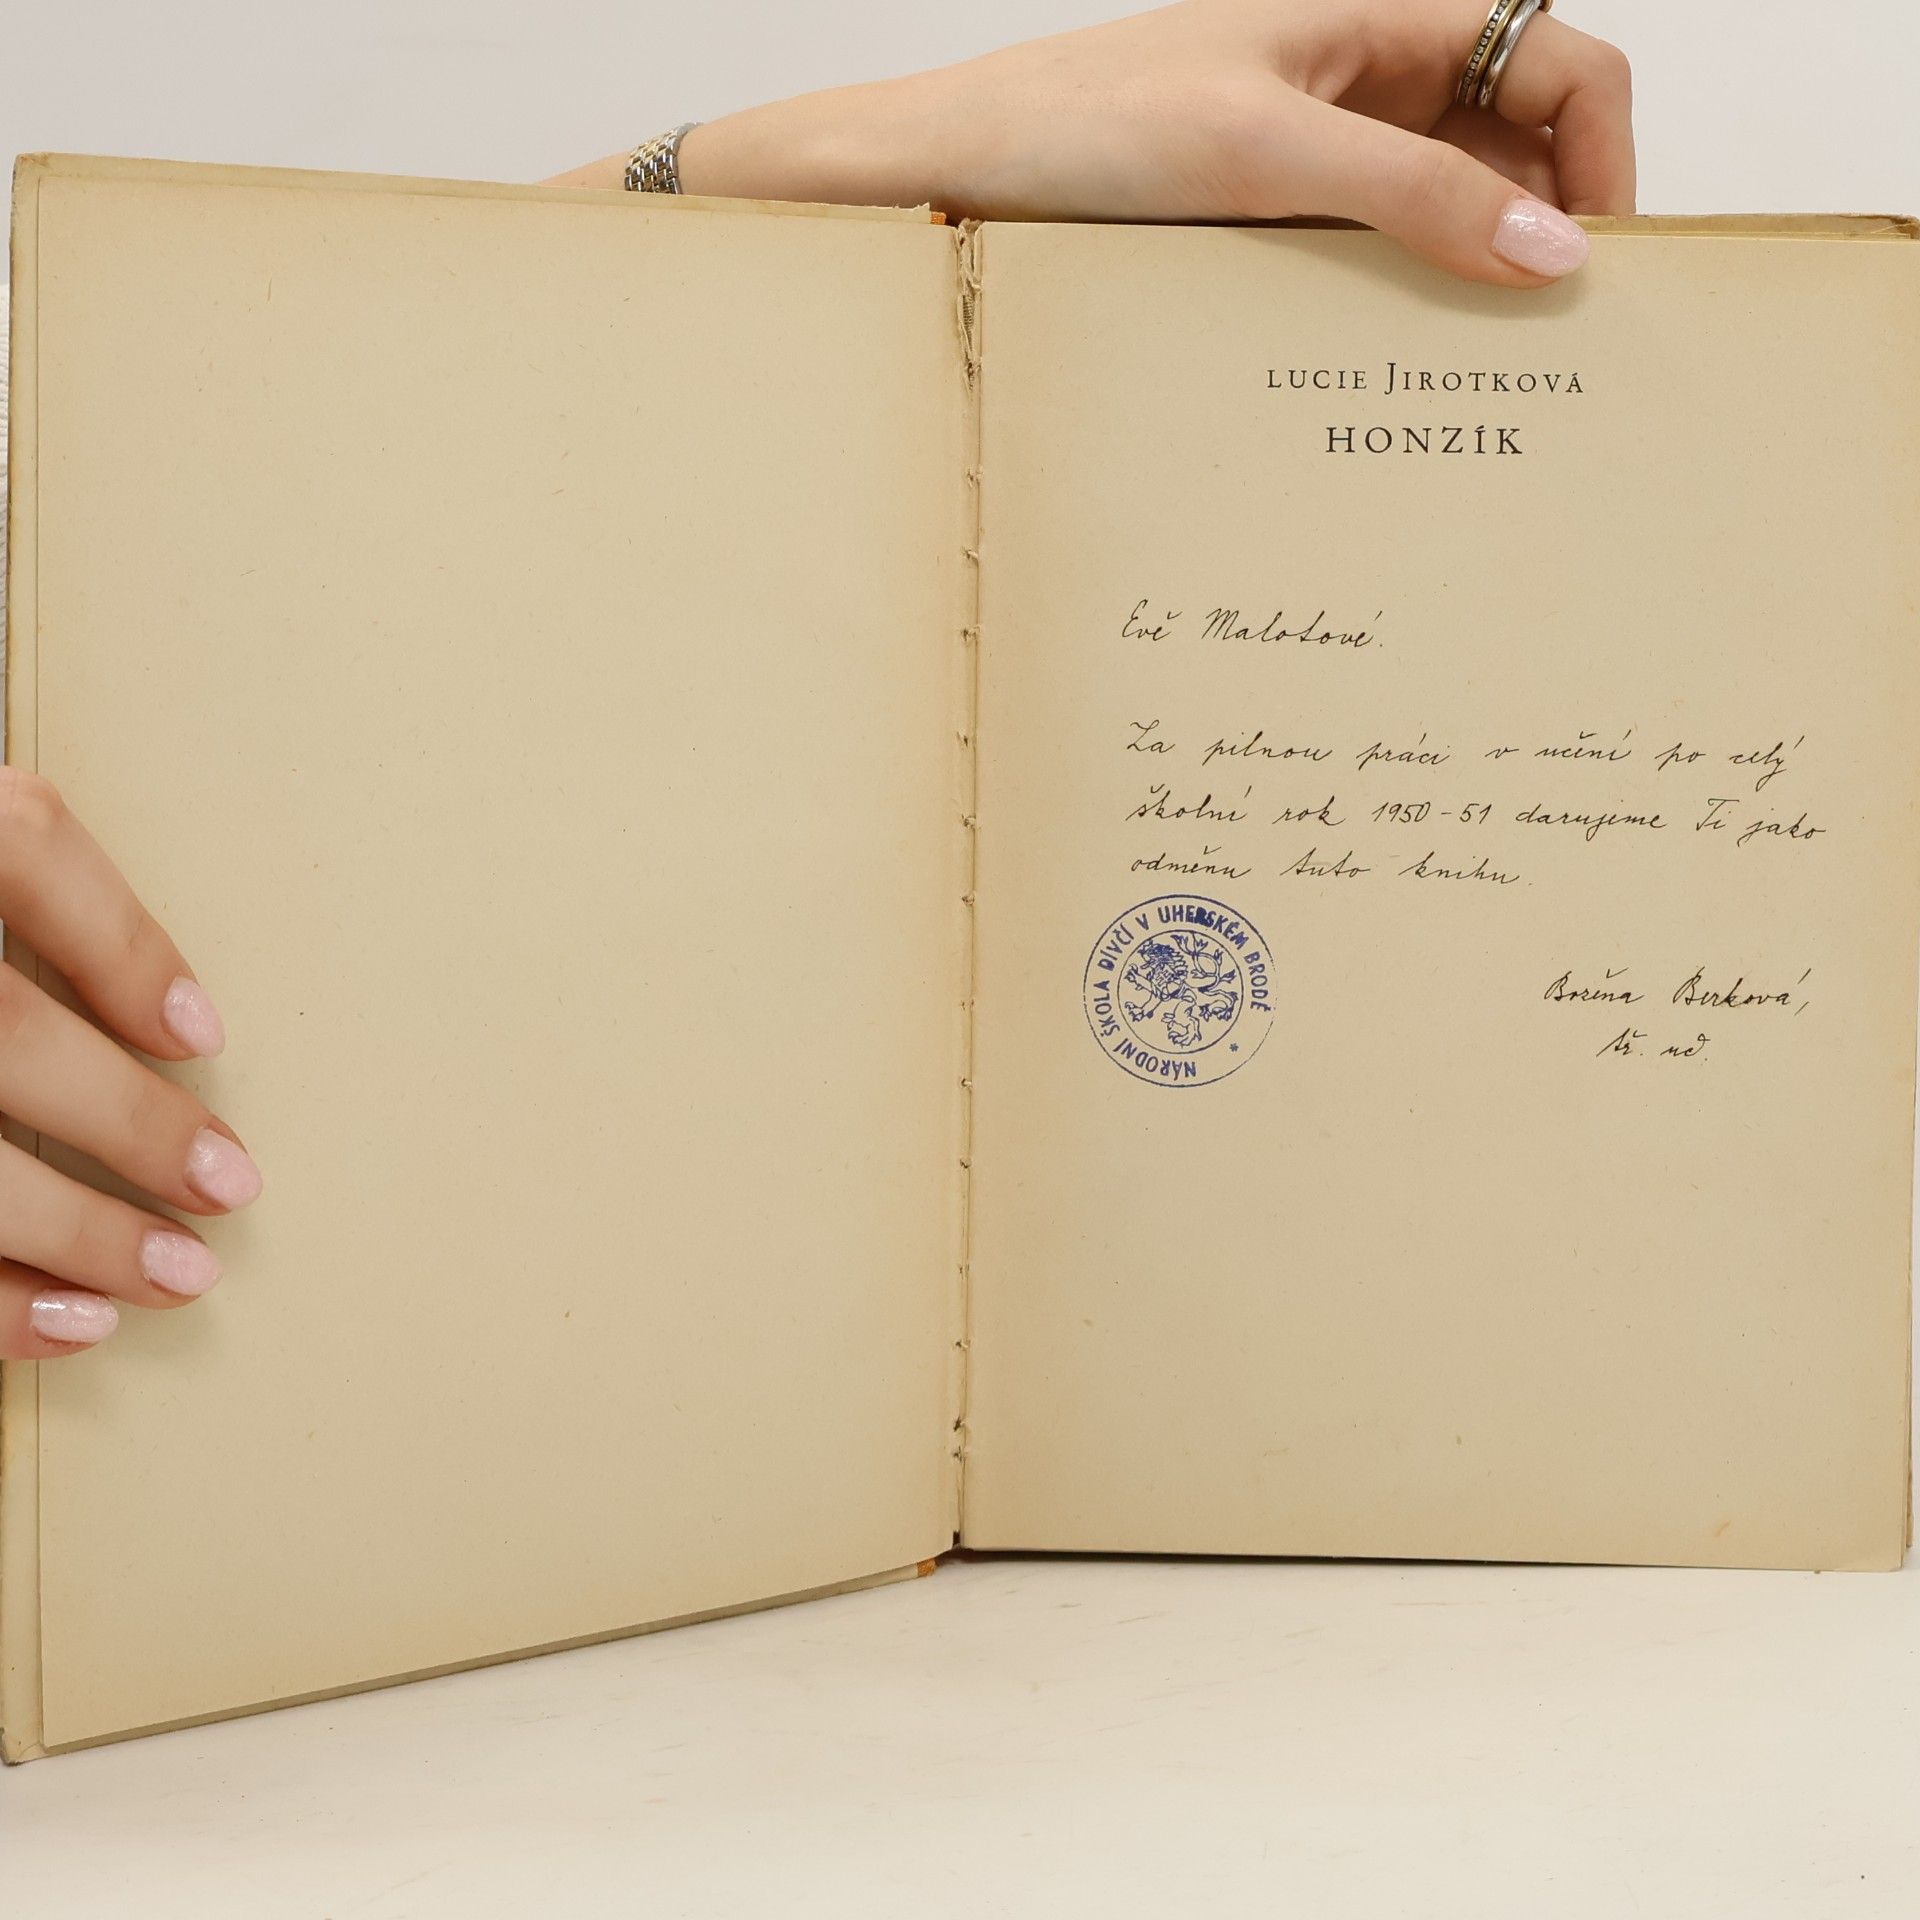 LUCIE JIROTKOVÁ
HONZÍK
Evě Malotové.
Za pilnou práci v učení po celý
školní rok 1950-51 darujeme Ti jako
odměnu tuto knihu.
NÁRODNÍ ŠKOLA DÍVČÍ V UHERSKÉM BRODĚ *
Božena Berková,
tř. uč.